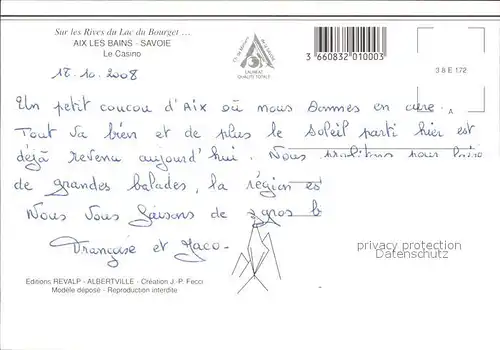 Sur les Rives du Lac du Bourget ...
AIX LES BAINS - SAVOIE
Le Casino
LAURÉAT
QUALITÉ TOTALE
3 660832 010003
38E172
18.10.2008
Un petit coucou d'Aix où nous sommes en cure.
A
Tout va bien et de plus le soleil parti hier est
déjà revenu aujourd'hui. Nous profitons pour faire
de grandes balades, la région es
Nous vous faisons de gros b
Françoise et Jaco.
privacy protection
Datenschutz
Editions REVALP - ALBERTVILLE - Création J.-P. Fecci
Modèle déposé - Reproduction interdite